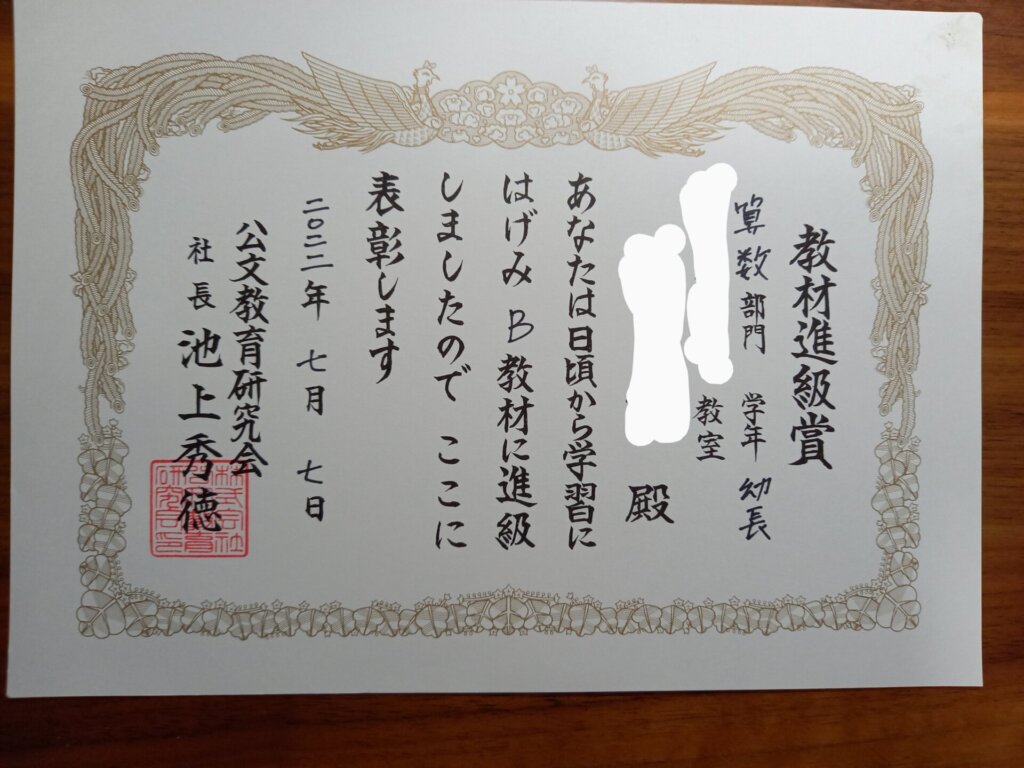 教材進級賞
算数部門 学年 幼長
教室
殿
あなたは日頃から学習に
はげみ B 教材に進級
しましたので ここに
表彰します
二〇二二年 七月 七日
公文教育研究会
社長 池上秀徳
株式会社
公文教育
研究会印